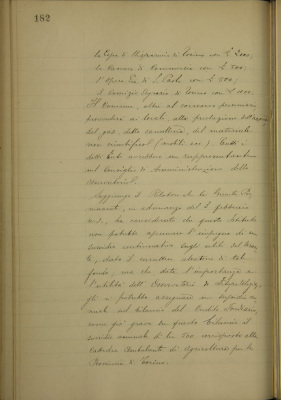 182
la Cassa di Risparmio di Torino con L. 2000,
la Camera di Commercio con L. 500,
l'Opera Pia di S. Paolo con L. 500,
il Comizio Agrario di Torino con L. 1000.
Il Comune, oltre al concorso
provvederà ai locali, alla prestazione dell'acqua
del gas, della cancelleria, del materiale
non scientifico (mobili ecc.). Tutti i
detti Enti avrebbero un rappresentante
nel Consiglio di Amministrazione dell'
Aggiunge il Relatore che la Giunta
in adunanza del 2 febbraio
ha considerato che questo Istituto
non potrebbe assumere l'impegno di un
sussidio continuativo sugli utili
dato il carattere aleatorio di tal
fondo, ma che data l'importanza e
l'utilità dell'Osservatorio di
gli si potrebbe assegnare un sussidio
annuale sul bilancio del Credito Fondiario,
come già grava su questo bilancio il
sussidio annuale di L. 500 corrisposto alla
Cattedra Ambulante di Agricoltura per la
Provincia di Torino.